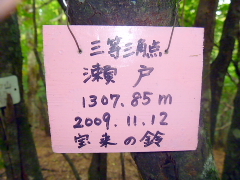 三等三角点
瀬戸
1307.85m
2009.11.12
宝来の鈴